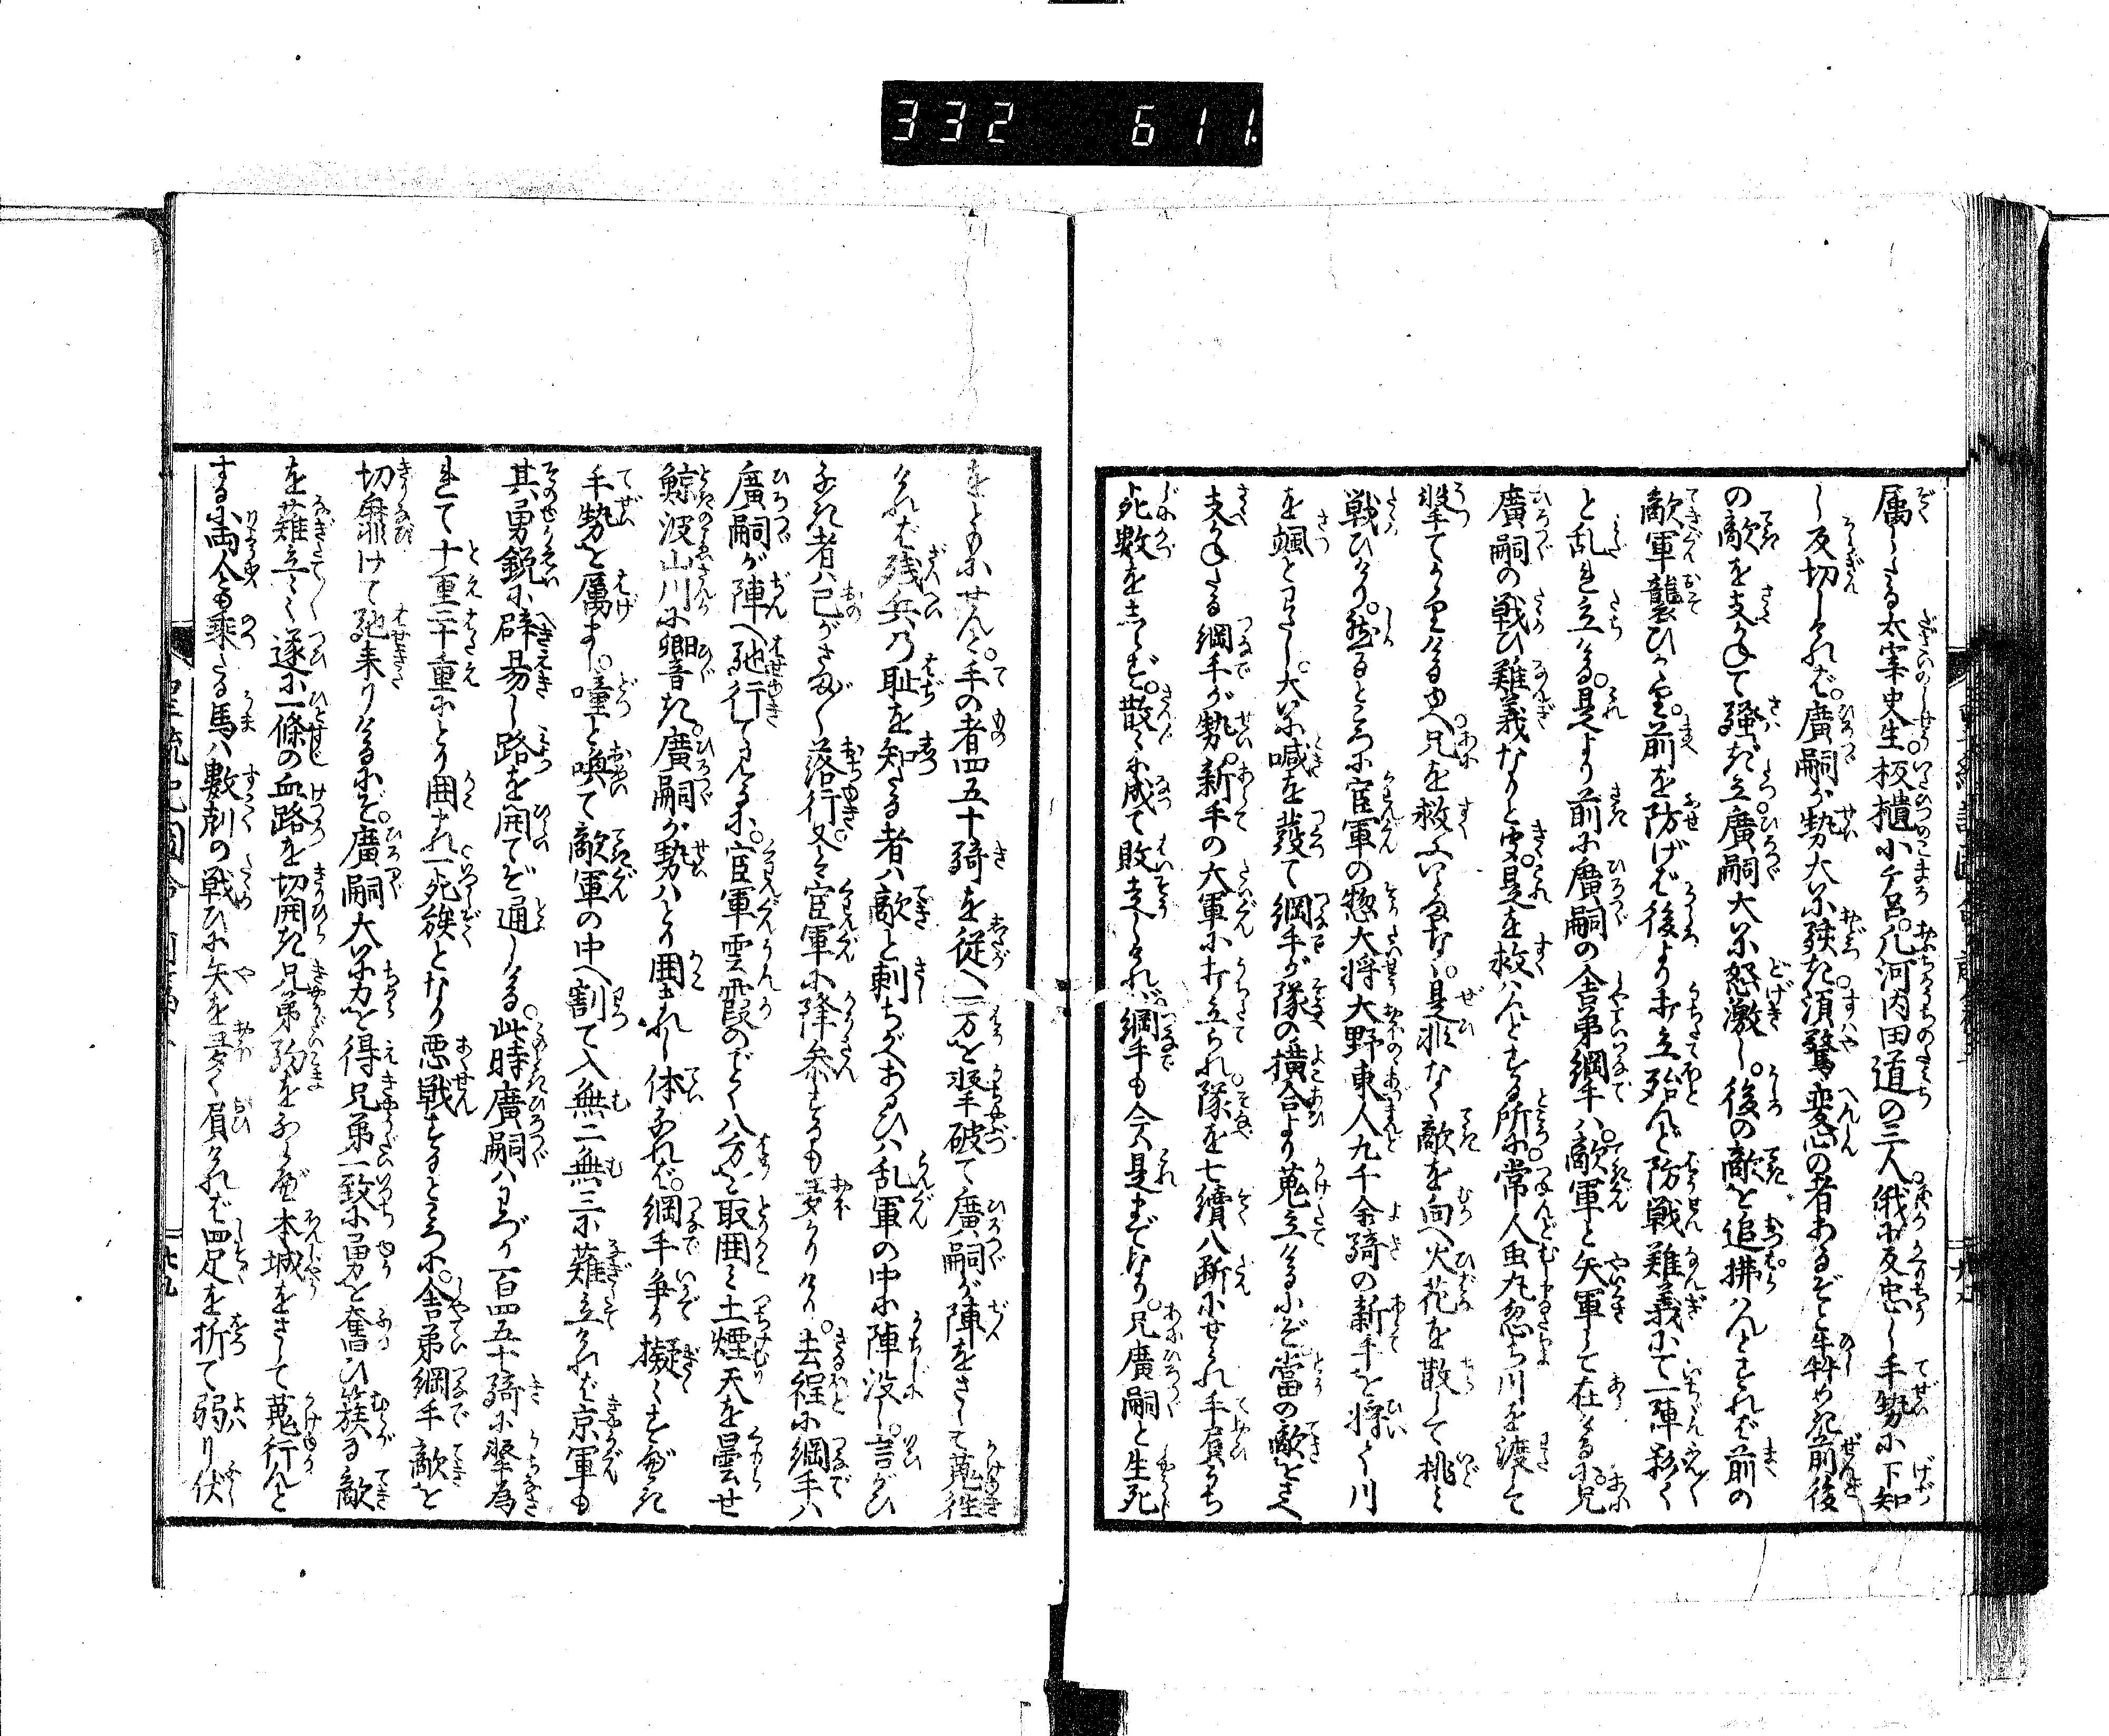 332 611
属しる太宰史生。板櫃小子呂。凡河内田道の三人。俄に反忠し手勢に下知
し反切しければ。廣嗣が勢大に駭き須驚変心の者あるぞと犇めき前後
の敵を支かねて騒ぎ立。廣嗣大に怒激し。後の敵を追拂はんとすれば前の
敵軍襲ひかゝり。前を防げば後より打立殆んど防戦難義にて一陣颩く
と乱れ立ける。是より前に廣嗣の舎弟綱手ハ。敵軍と矢軍して在けるに。兄
廣嗣の戦ひ難義なりと聞。是を救ハんとする所に。常人虫丸忽ち川を渡して
撃てかゝりける由へ。兄を救ふいとまなく。是非なく敵を向へ火花を散して挑み
戦ひけり。然るところに官軍の惣大将大野東人九千余騎の新手を将ゐ川
を颯とわたし。大に喊を發て綱手が隊の横合より蒐立けるにぞ。當の敵をさへ
支かねたる綱手が勢。新手の大軍に打立られ。隊を七續八断にせられ手負うち
死數を志らず。散々に成て敗走しければ。綱手も今ハ是までなり。兄廣嗣と生死
をともにせんと。手の者四五十騎を従へ一方を撃破て廣嗣が陣をさして蒐往
ければ残兵の恥を知たる者ハ敵と刺ちがへあるひハ乱軍の中に陣没し。言がひ
なき者ハ己がさまざま落行。又ハ官軍に降参するも多かりけり。去程に綱手ハ
廣嗣が陣へ馳行て見るに。官軍雲霞のごとく八方を取囲ミ土煙天を曇せ
鯨波山川に響き。廣嗣が勢ハとり囲まれし体なれば。綱手争か擬々すべき
手勢を属まし。噇と喚て敵軍の中へ割て入無二無三に薙立ければ京軍も
其勇鋭に辟易し路を開てぞ通しける。此時廣嗣ハわづか一百四五十騎に撃為
されて十重二十重にとり囲まれ一死族となり悪戦するところに。舎弟綱手敵を
切靡けて馳来りけるにぞ。廣嗣大に力を得兄弟一致に勇を奮ひ簇る敵
を薙立々々遂に一條の血路を切開き兄弟駒をならべ本城をさして蒐行んと
するに両人とも乗たる馬ハ數刻の戦ひに矢を多く負ければ四足を折て弱り伏